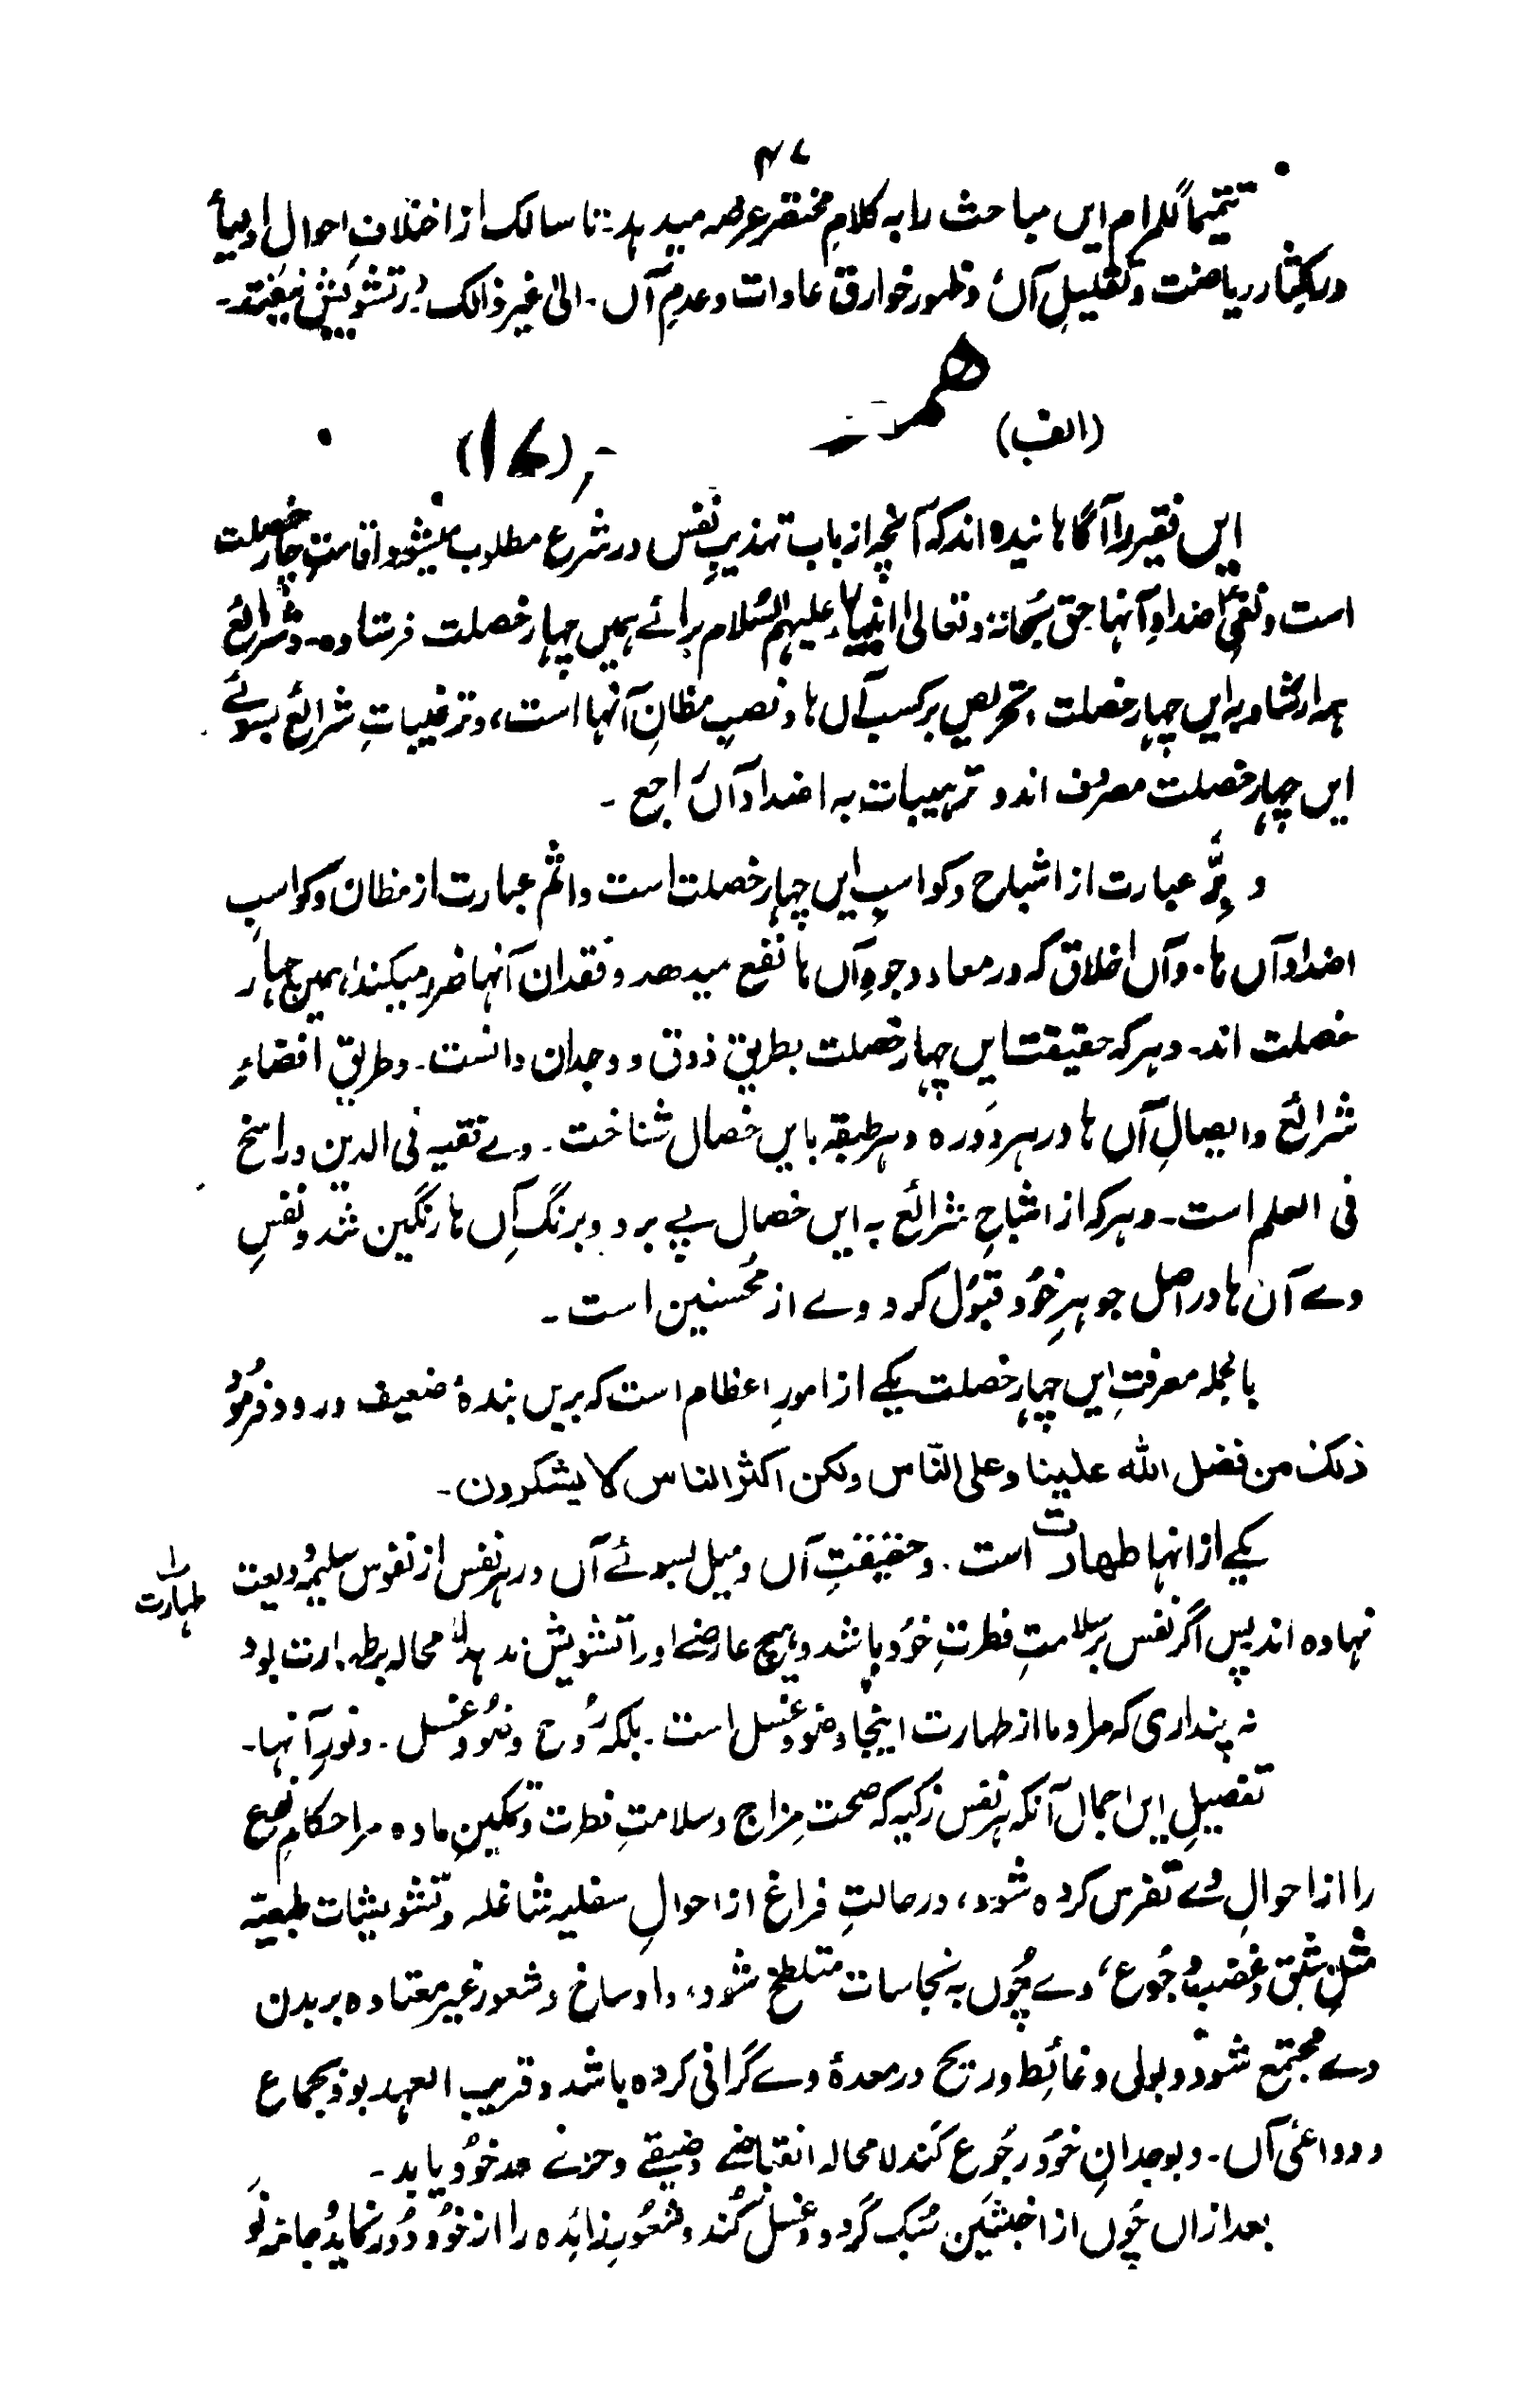 ۴۷
تتمیماً للمرام ایں مباحث را بہ کلامِ مختصر عرضہ میدہد: تا سالک از اختلافِ احوال اولیأ
در اکثار ریاضت و تقلیلِ آں و ظہور خوارق عادات و عدمِ آں۔ الیٰ غیر ذالک در تشویش نیفتد۔
(الف) همعـه (۱۶)
ایں فقیر را آگاہانیدہ اند کہ آنچہ از باب تہذیبِ نفس در شرع مطلوب میشود اقامت چہار خصلت
است و نفیٔ اضدادِ آنہا حق سُبحانہٗ و تعالیٰ انبیاء علیہم السَّلام برائے ہمیں چہار خصلت فرستادہ۔ و شرائع
ہمہ ارشاد بہ ایں چہار خصلت، تحریص بر کسبِ آں ہا و نصبِ مظانِ آنہا است، و ترغیباتِ شرائع بسوئے
ایں چہار خصلت مصروف اند و ترہیبات بہ اضداد آں راجع۔
و بِرّ عبارت از اشباح و کواسبِ ایں چہار خصلت است و اثم عبارت از مظان و کواسبِ
اضداد آں ہا۔ و آں اخلاق کہ در معاد وجودِ آں ہا نفع میدهد و فقدان آنہا ضرر میکند، ہمیں چہار
خصلت اند۔ و ہر کہ حقیقت ایں چہار خصلت بطریق ذوق و وجدان دانست۔ و طریق افضاءِ
شرائع و ایصالِ آں ہا در ہر دَورہ و ہر طبقہ بایں خصال شناخت۔ وے فقیہ فی الدین و راسخ
فی العلم است۔ و ہر کہ از اشباحِ شرائع بہ ایں خصال پے برد و برنگِ آں ہا رنگین شد و نفسِ
وے آن ہا در اصل جوہرِ خُود قبُول کرد وے از مُحسنین است۔
بالجملہ معرفتِ ایں چہار خصلت یکے از امورِ اعظام است کہ بریں بندۂ ضعیف ورود فرمُود
ذٰلك من فضل اللّٰه علینا و علی النّاس ولکن اکثر الناس لا یشکرون۔
یکے از انہا طهارت است۔ و حقیقتِ آں و میل بسوئے آں در ہر نفس از نفوس سلیمہ ودیعت
۱ طہارت
نہادہ اند پس اگر نفس بر سلامتِ فطرتِ خُود باشد و ہیچ عارضے او را تشویش ندہد لا محالہ بطہارت بود
نہ پنداری کہ مراد ما از طہارت اینجا وضو و غسل است۔ بلکہ رُوح وضُو و غُسل۔ و نورِ آنہا۔
تفصیلِ ایں اجمال آنکہ ہر نفس زکیہ کہ صحت مِزاج و سلامتِ فطرت و تمکینِ مادہ مر احکامِ نوع
را از احوالِ وے تفرس کردہ شود، در حالتِ فراغ از احوالِ سفلیہ شاغلہ و تشویشات طبعیہ
مثلِ شبق و غضب و جُوع، وے چُوں بہ نجاسات متلطخ شود، و اوساخ و شعور غیر معتادہ بر بدن
وے مجتمع شود و بول و غائط و ریح در معدۂ وے گرانی کردہ باشد و قریب العہد بود بجماع
و دواعیٔ آں۔ و بوجدانِ خُود رجُوع کند لا محالہ انقباضے وضیقے و حزنے در خُود یابد۔
بعد ازاں چُوں از اخبثین سُبک گردد و غسل کُند و شعُورِ زائدہ را از خُود دُور نماید و جامہ نَو